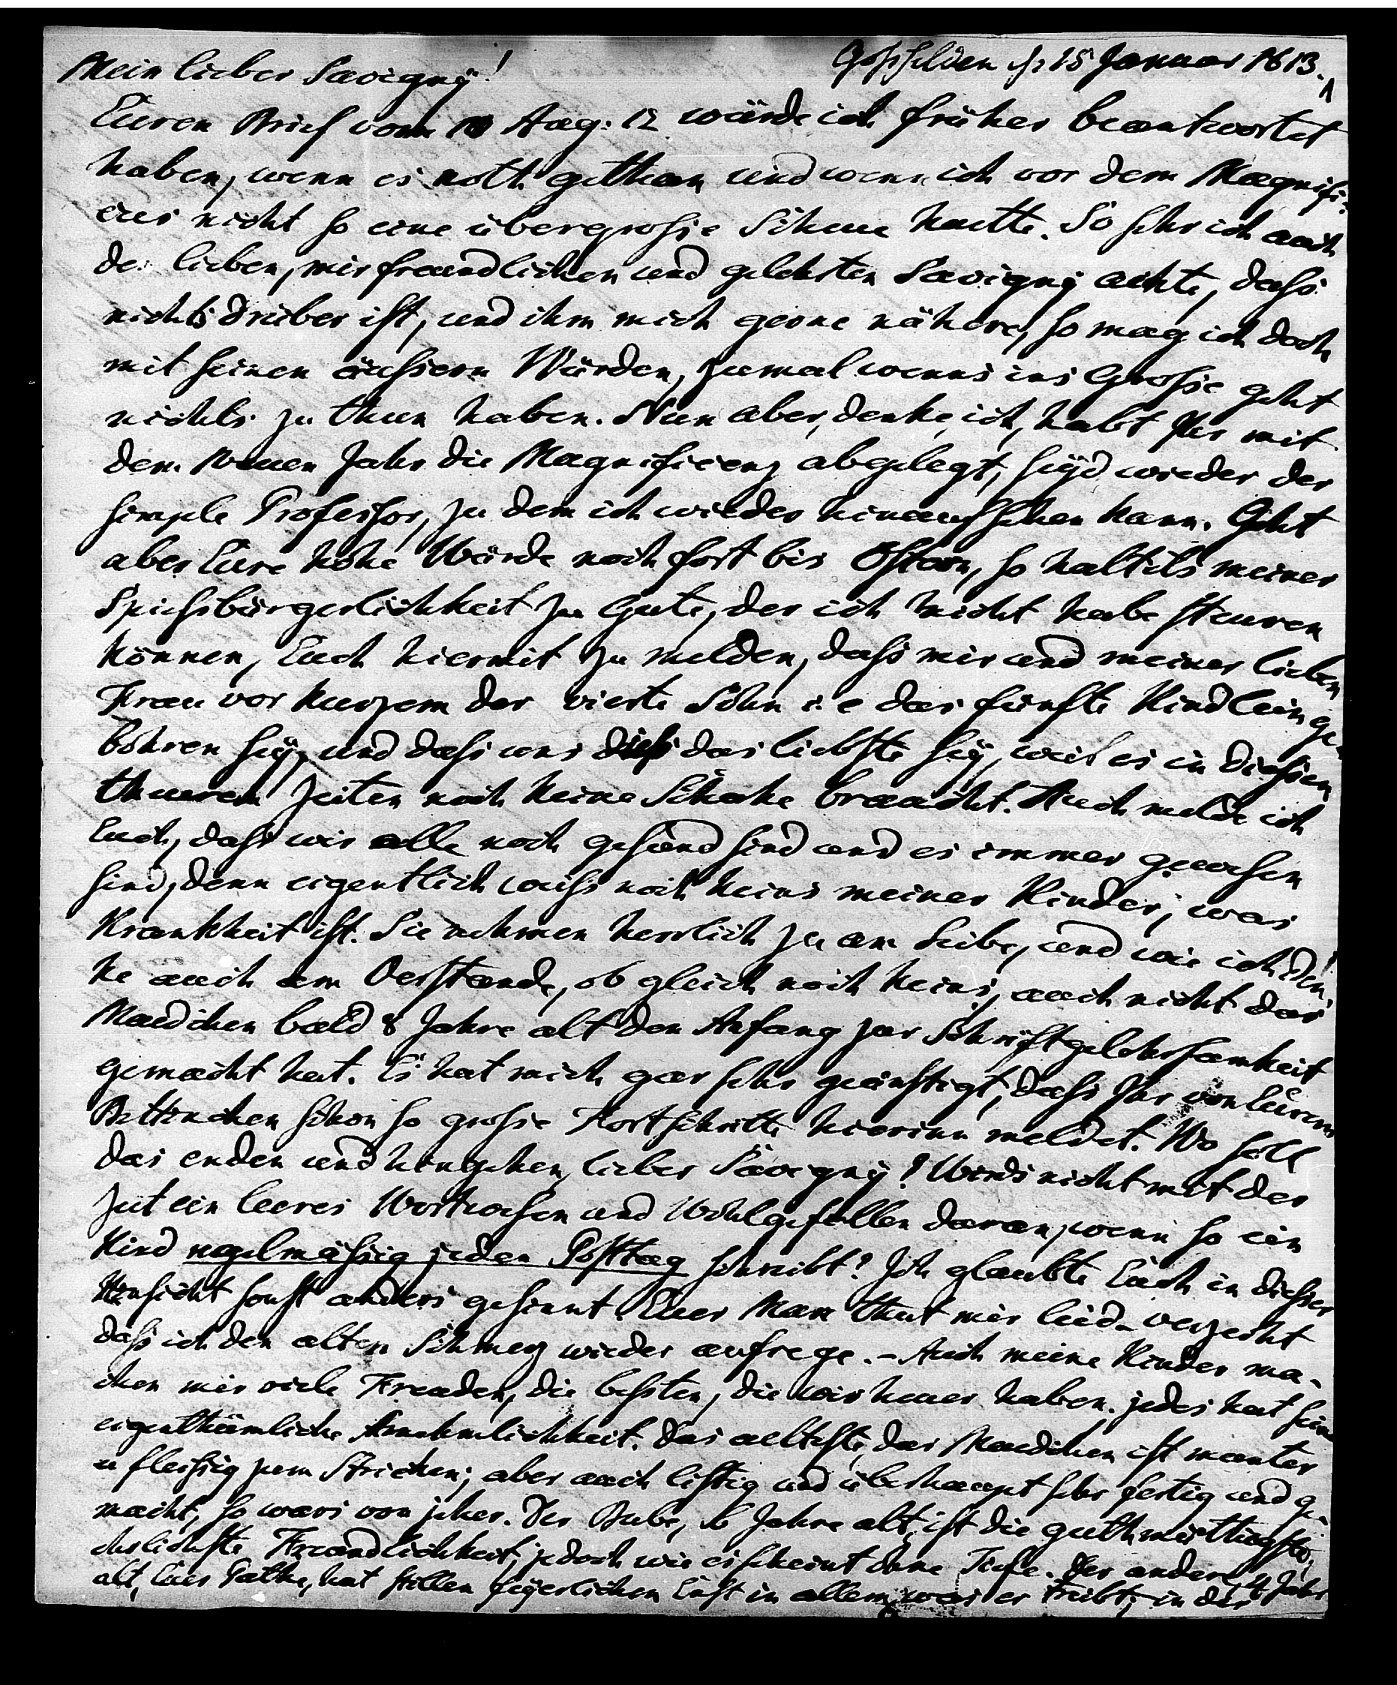 Goßfelden d. 15 Januar 1813.
Mein lieber Savigny!
Euren Brief vom 10 Aug: 12 würde ich früher beantwortet
haben, wenn es noth gethan und wenn ich vor dem Magnifi-
cus nicht so eine übergroße Scheue hätte. So sehr ich auch
den lieben, mir freundlichen und gelehrten Savigny achte, daß
nichts drüber ist, und ihm mich gerne nähere, so mag ich doch
mit seinen äußern Würden, zumal wenns ins Große geht
nichts zu thun haben. Nun aber, denke ich, habt Ihr mit
dem neuen Jahr die Magnificenz abgelegt, seyd wieder der
simple Professor, zu dem ich wieder hinaufsehen kann. Geht
aber Eure hohe Würde noch fort bis Ostern, so haltets meiner
Spiesbürgerlichkeit zu Gute, der ich nicht habe steuren
können, Euch hiermit zu melden, daß mir und meiner lieben
Frau vor kurzem der vierte Sohn i e das fünfte Kindlein ge-
bohren sey, und daß uns dieß das liebste sey, weil es in diesen
theueren Zeiten noch keine Schuhe braucht. Auch melde ich
Euch, daß wir alle noch gesund sind und es immer gewesen
sind, denn eigentlich weiß noch keins meiner Kinder, was
Krankheit ist. Sie nehmen herrlich zu am Leibe, und wie ich den-
ke auch am Verstande, ob gleich noch keins, auch nicht das
Mædchen bald 8 Jahre alt den Anfang zur Schriftgelehrsamkeit
gemacht hat. Es hat mich gar sehr geängstigt, daß Ihr von Eurem
Bettinchen schon so große Fortschritte hierinn meldet. Wo soll
das enden und hingehen, lieber Savigny? Wirds nicht mit der
Zeit ein leeres Wortwesen und Wohlgefallen daran, wenn so ein
Kind regelmäßig jeden Posttag schreibt? Ich glaubte Euch in dieser
Hinsicht sonst anders gesinnt. Euer Mann thut mir leid – verzeiht
daß ich den alten Schmerz wieder aufrege. – Auch meine Kinder ma-
chen mir viele Freuden, die besten, die wir heuer haben. jedes hat seine
eigenthümliche Annehmlichkeit. Das aelteste, das Maedchen ist munter
u fleißig zum Stricken; aber auch listig und überhaupt sehr fertig und ge-
macht, so wars von jeher. Der Bube, 6 Jahre alt, ist die guthmüthigste,
Freundlichkeit, jedoch wie es scheint ohne Tiefe. Der andere, 4 Jahr
alt, Euer Pathe, hat stillen feyerlichen Ernst in allem, was er treibt, in der